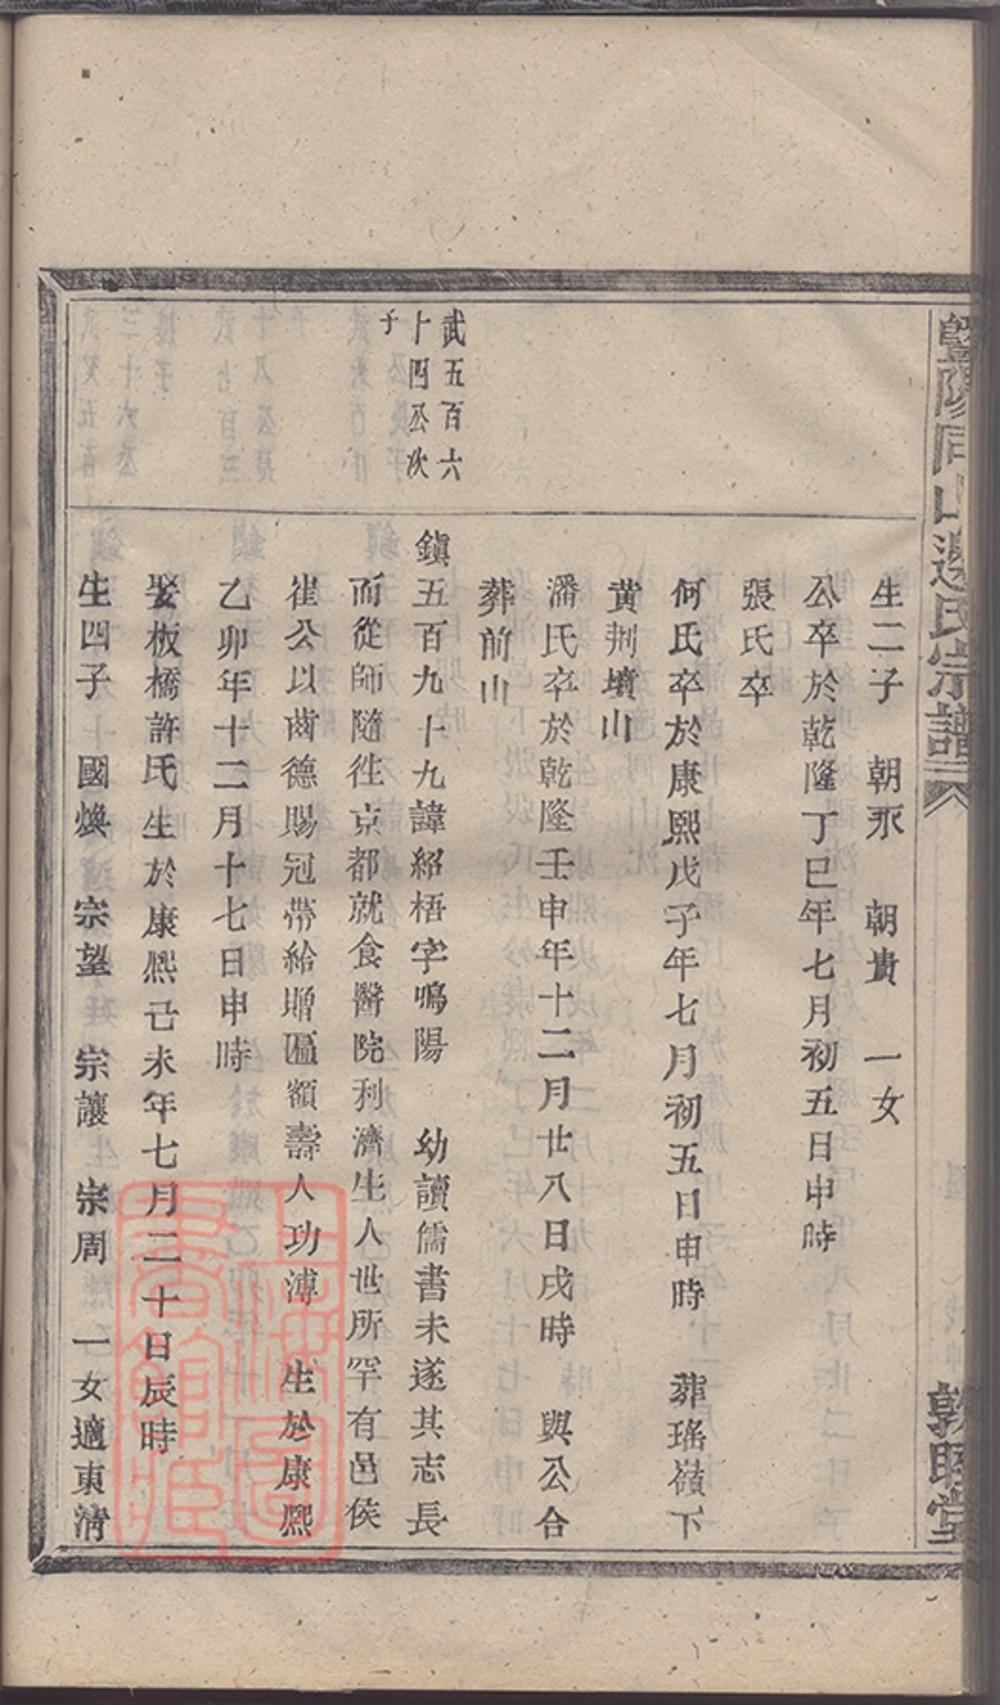 暨陽同山邊氏宗譜
敦睦堂
生二子 朝永 朝貴 一女
公卒於乾隆丁巳年七月初五日申時
張氏卒
何氏卒於康熙戊子年七月初五日申時 葬瑤嶺下
黄荆墳山
潘氏卒於乾隆壬申年十二月廿八日戌時 與公合
葬前山
武五百六
十四公次
子
鎮五百九十九諱紹梧字鳴陽 幼讀儒書未遂其志長
而從師隨徃京都就食醫院利濟生人世所罕有邑侯
崔公以齒德賜冠帶給贈匾額壽人功溥 生於康熙
乙卯年十二月十七日申時
娶板橋許氏生於康熙己未年七月二十日辰時
生四子 國煥 宗望 宗讓 宗周 一女適東淸
上海圖
書館藏